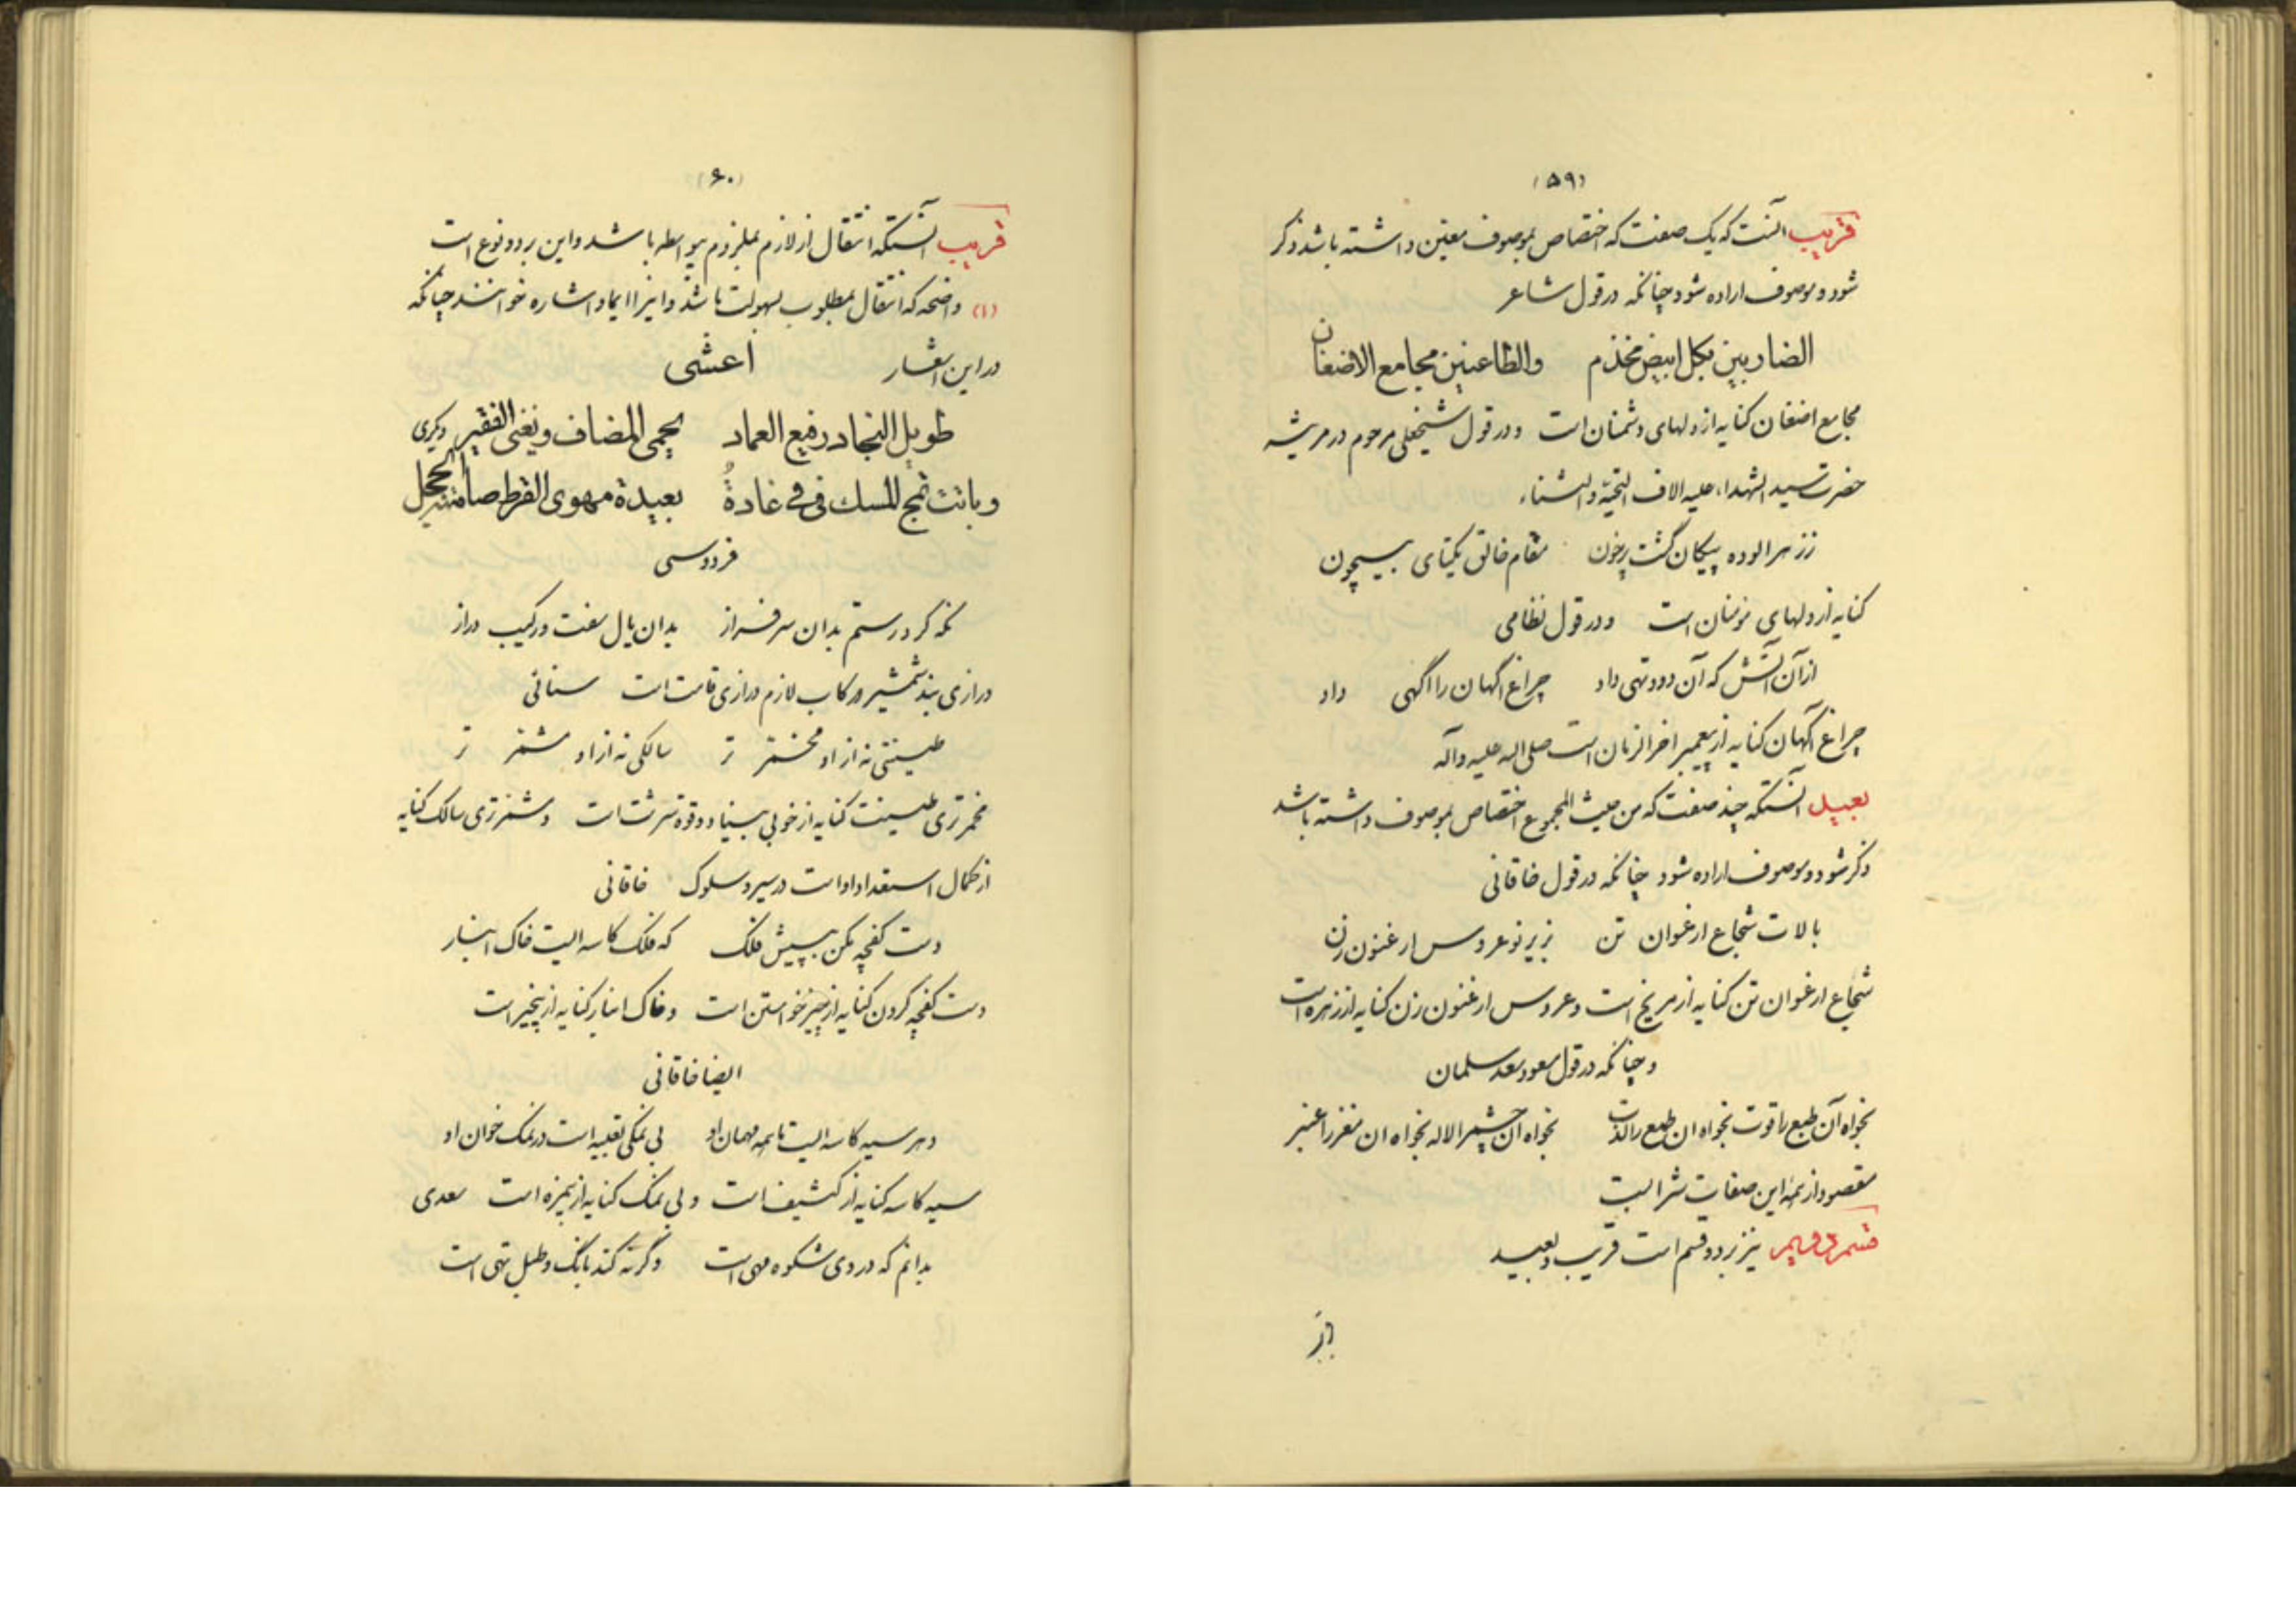 (۵۹)
قریب آنست که یک صفت که اختصاص بموصوف معین داشته باشد ذکر
شود و موصوف اراده شود چنانکه در قول شاعر
الضاربین بکل ابیض مخذم والطاعنین مجامع الاضغان
مجامع اضغان کنایه از دلهای دشمنان است و در قول شیخعلی مرحوم در مرثیه
حضرت سید الشهداء علیه الاف التحیة والثناء
ز زهر الوده پیکان گشت پرخون مقام خالق یکتای بیچون
کنایه از دلهای مومنان است و در قول نظامی
از آن آتش که آن دود تهی داد چراغ اگهان را اگهی داد
چراغ آگهان کنایه از پیغمبر اخر الزمان است صلی اله علیه وآله
بعید آنستکه چند صفت که من حیث المجموع اختصاص بموصوف داشته باشد
ذکر شود و موصوف اراده شود چنانکه در قول خاقانی
بالات شجاع ارغوان تن زیر نو عروس ارغنون زن
شجاع ارغوان تن کنایه از مریخ است و عروس ارغنون زن کنایه از زهره است
و چنانکه در قول مسعود سعد سلمان
بخواه آن طبع را قوت بخواه ان طبع را لذت بخواه ان چشم را لاله بخواه ان مغز را عنبر
مقصود از همه این صفات شرابیت
قسم دویم نیز بر دو قسم است قریب و بعید
(۶۰)
قریب آنستکه انتقال از لازم بملزوم بیواسطه باشد و این بر دو نوع است
(۱) واضحه که انتقال بمطلوب بسهولت باشد و اینرا ایما و اشاره خوانند چنانکه
در این اشعار اعشی
طویل النجاد رفیع العماد یحمی المضاف ویغنی الفقیر دیگری
وباتت تمج المسک فی فی غادة بعیدة مهوی القرط صامتة الحجل
فردوسی
نگه کرد رستم بدان سرفراز بدان یال سفت و رکیب دراز
درازی بند شمشیر و رکاب لازم درازی قامت است سنائی
طینتی نه از او مخمر تر سالکی نه از او مشمر تر
مخمر تری طینت کنایه از خوبی بنیاد و قوة سرشت است و مشمر تری سالک کنایه
از کمال استعداد او است در سیر و سلوک خاقانی
دست کفچه مکن بپیش فلک که فلک کاسه ایست خاک انبار
دست کفچه کردن کنایه از چیز خواستن است و خاک انبار کنایه از بیخیر است
ایضا خاقانی
دهر سیه کاسه ایست ما همه مهمان او بی نمکی تعبیه است در نمک خوان او
سیه کاسه کنایه از کثیف است و بی نمک کنایه از بیمزه است سعدی
بدانم که در وی شکوه مهی است وگرنه کند بانگ و طبل تهی است